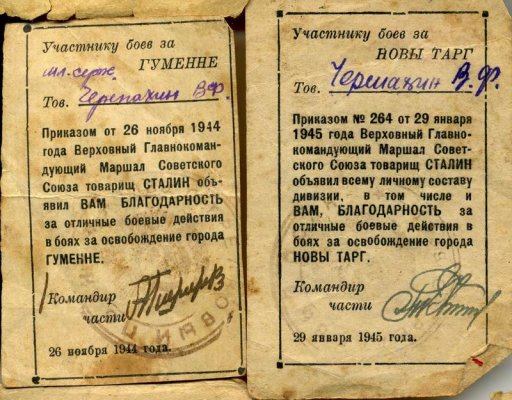 Участнику боев за
ГУМЕННЕ
мл. серж.
Тов. Черепахин В.Ф.
Приказом от 26 ноября 1944
года Верховный Главнокоман-
дующий Маршал Советского
Союза товарищ СТАЛИН объ-
явил ВАМ БЛАГОДАРНОСТЬ
за отличные боевые действия
в боях за освобождение города
ГУМЕННЕ.
Командир
части
26 ноября 1944 года.
Участнику боев за
НОВЫ ТАРГ
Тов. Черепахин В.Ф.
Приказом № 264 от 29 января
1945 года Верховный Главно-
командующий Маршал Совет-
ского Союза товарищ СТАЛИН
объявил всему личному составу
дивизии, в том числе и
ВАМ, БЛАГОДАРНОСТЬ за
отличные боевые действия в
боях за освобождение города
НОВЫ ТАРГ.
Командир
части
29 января 1945 года.